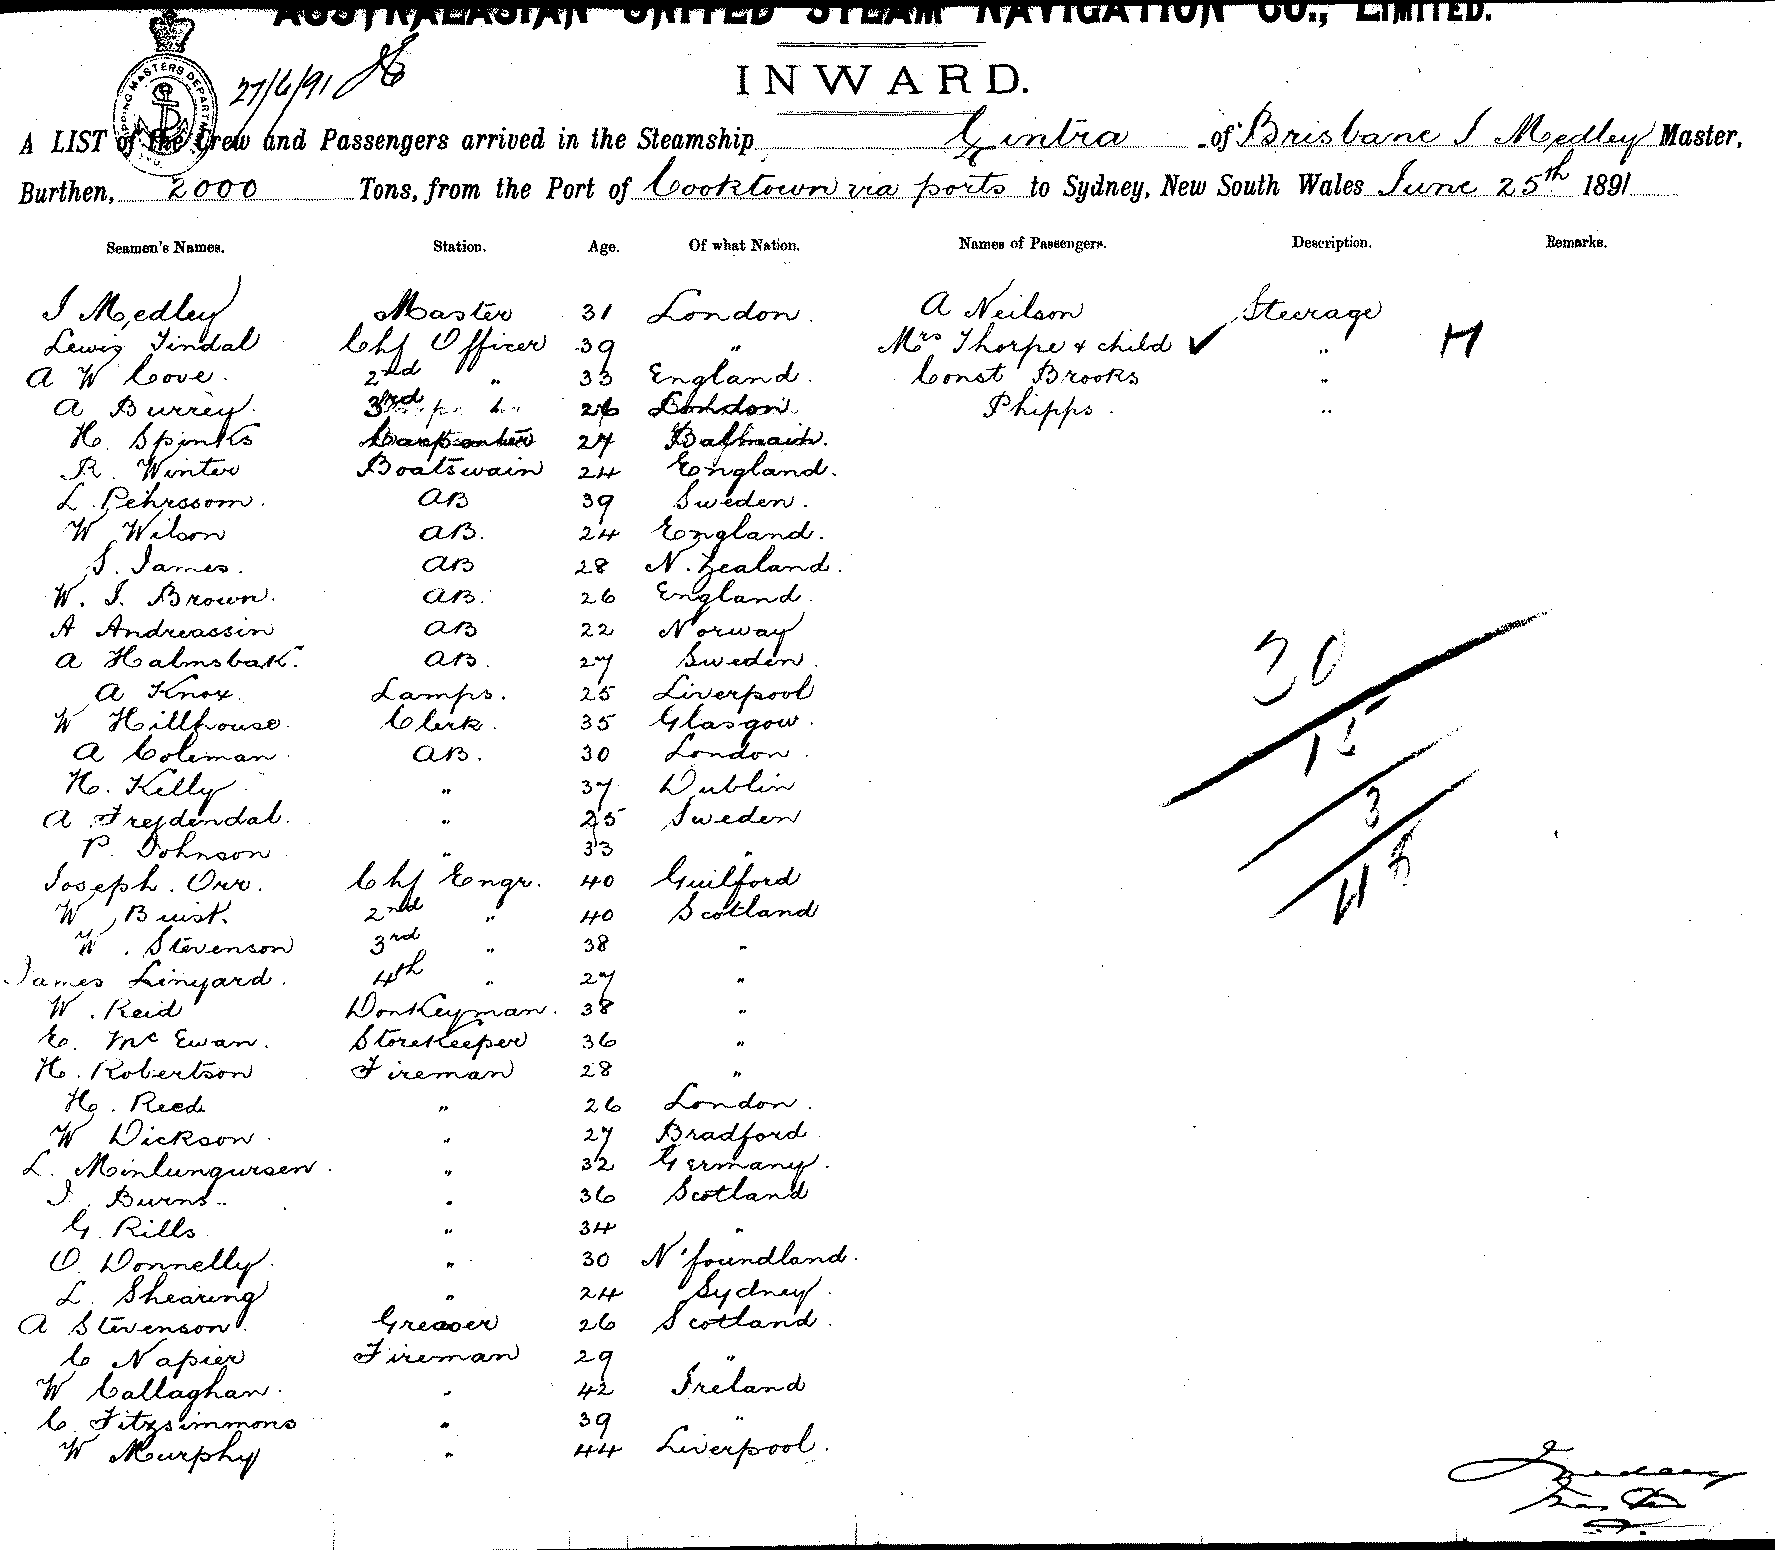 AUSTRALASIAN UNITED STEAM NAVIGATION CO., LIMITED.
27/6/91
INWARD.
A LIST of the Crew and Passengers arrived in the Steamship Gintra of Brisbane J Medley Master,
Burthen, 2000 Tons, from the Port of Cooktown via ports to Sydney, New South Wales June 25th 1891
Seamen's Names. Station. Age. Of what Nation. Names of Passengers. Description. Remarks.
J Medley Master 31 London. A Neilson Steerage
Lewis Tindal Chf Officer 39 " Mrs Thorpe & child ✓ " H
A W Cove. 2nd " 33 England. Const Brooks "
A Burrey. 3rd 26 London. Phipps. "
H. Spinks Carpenter 27 Balmain.
R. Winter Boatswain 24 England.
L. Pehrssom. AB 39 Sweden.
W Wilson AB. 24 England.
S. James. AB 28 N. Zealand.
W. J. Brown. AB. 26 England.
A Andreassin AB 22 Norway
A Halmsbak. AB. 27 Sweden.
A Knox. Lamps. 25 Liverpool
W Hillhouse. Clerk. 35 Glasgow.
A Coleman. AB. 30 London.
H. Kelly " 37 Dublin
A Frejdendal. " 25 Sweden
P. Johnson " 33 "
Joseph. Orr. Chf Engr. 40 Guilford
W Buist. 2nd " 40 Scotland
W. Stevenson 3rd " 38 "
James Linyard. 4th " 27 "
W. Reid Donkeyman. 38 "
E. McEwan. Storekeeper 36 "
H. Robertson Fireman 28 "
H. Reed " 26 London.
W Dickson. " 27 Bradford
L. Minlungursen. " 32 Germany.
J. Burns. " 36 Scotland
G. Rills " 34 "
O Donnelly. " 30 N'foundland.
L. Shearing " 24 Sydney.
A Stevenson. Greaser 26 Scotland.
C Napier Fireman 29 "
W Callaghan. " 42 Ireland
C. Fitzsimmons " 39 "
W Murphy " 44 Liverpool.
30
15
3
48